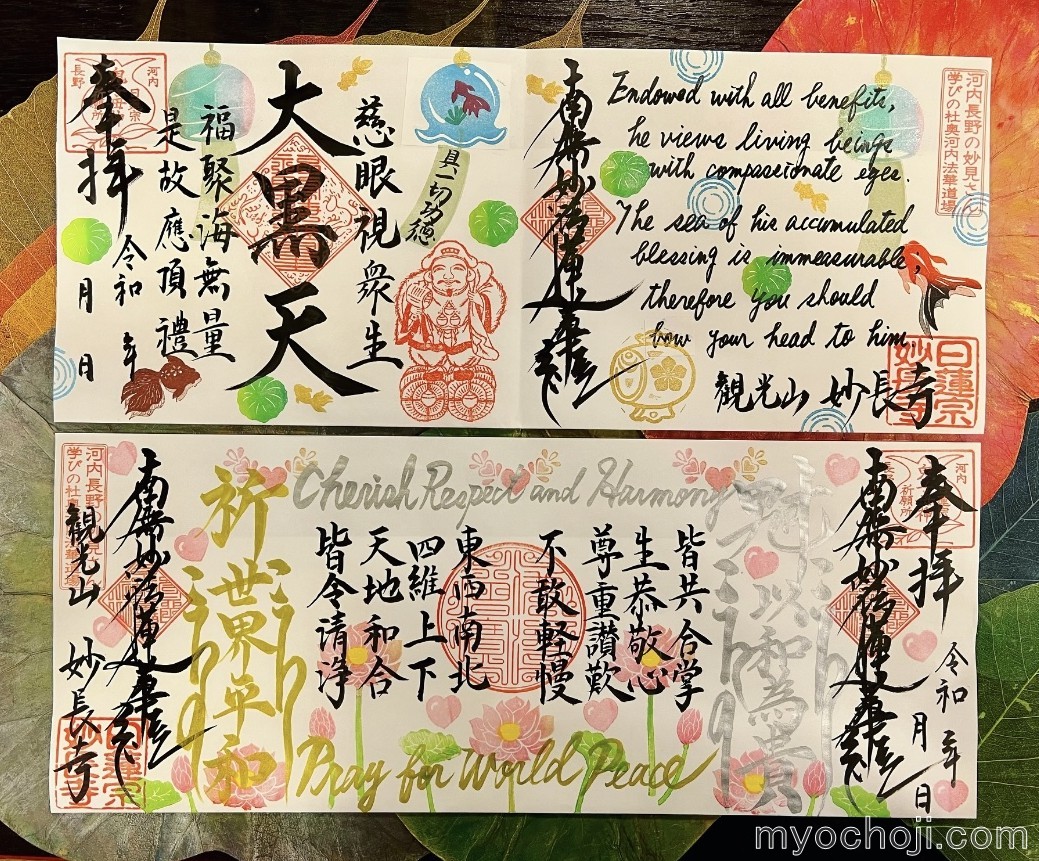 河内長野の妙見さん
学びの杜奥河内法華道場
Endowed with all benefits,
he views living beings
with compassionate eyes.
The sea of his accumulated
blessing is immeasurable,
therefore you should
bow your head to him.
観光山 妙長寺
日蓮宗
妙長寺
南無妙法蓮華経
慈眼視衆生
具一切功徳
大黒天
福聚海無量
是故應頂禮
奉拝
令和 年
月 日
河内
長野
奉拝
令和 年
月 日
河内
祈願所
南無妙法蓮華経
以和為貴
Cherish Respect and Harmony
皆共合掌
生恭敬心
尊重讃歎
不敢軽慢
東西南北
四維上下
天地和合
皆令清浄
祈世界平和
Pray for World Peace
南無妙法蓮華経
観光山 妙長寺
河内長野
学びの杜
日蓮宗
妙長寺
myochoji.com